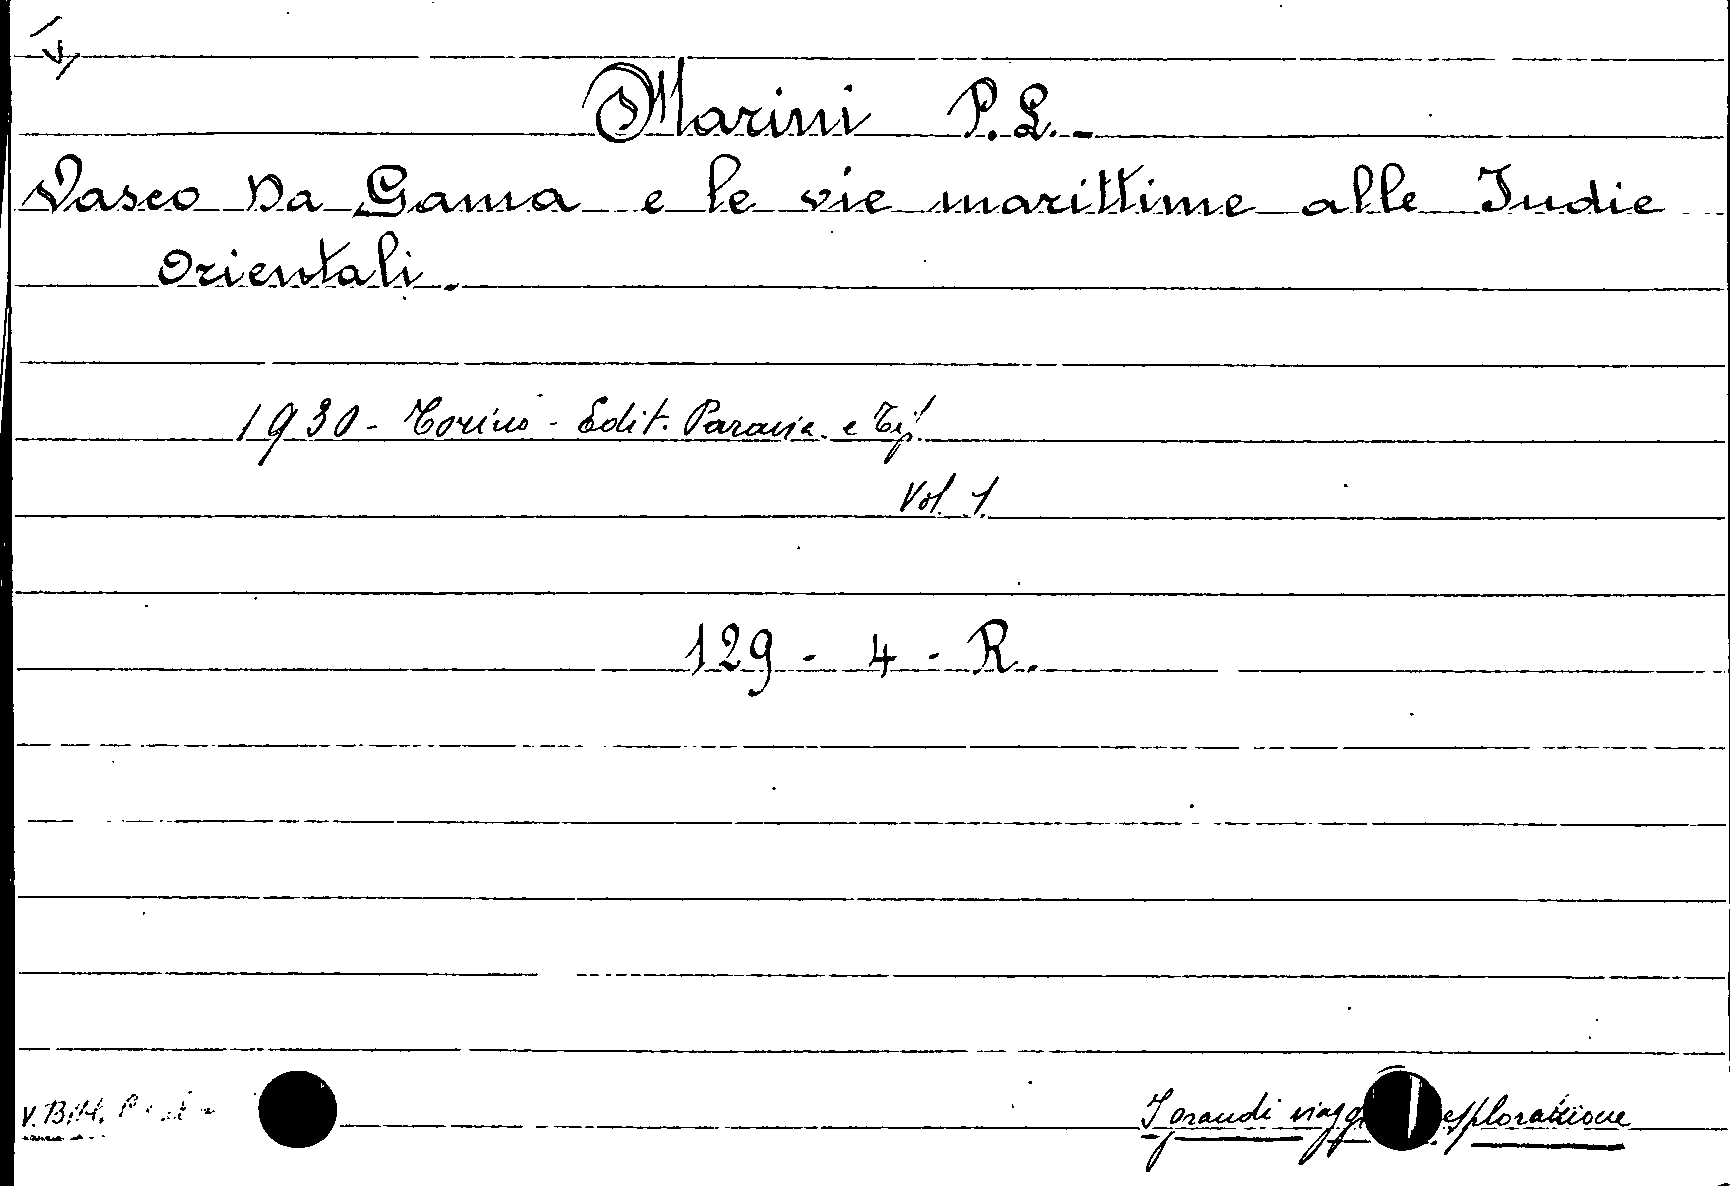 Marini P. L. -
Vasco Da Gama e le vie marittime alle Indie
Orientali.
1930 - Torino - Edit. Paravia e Tip.
Vol. 1.
129 - 4 - R.
V. Bibl.
I grandi viaggi esplorazione